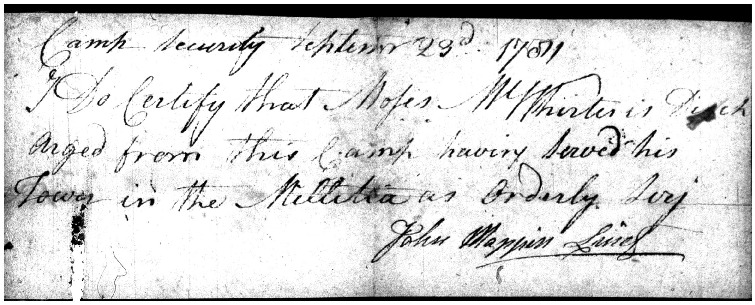 Camp Security Septemr 23d 1781
I Do Certify that Moses McWhirter is Disch
arged from this Camp having Served his
Tower in the Mellitia as Orderly Serj
John Mappin Lieut